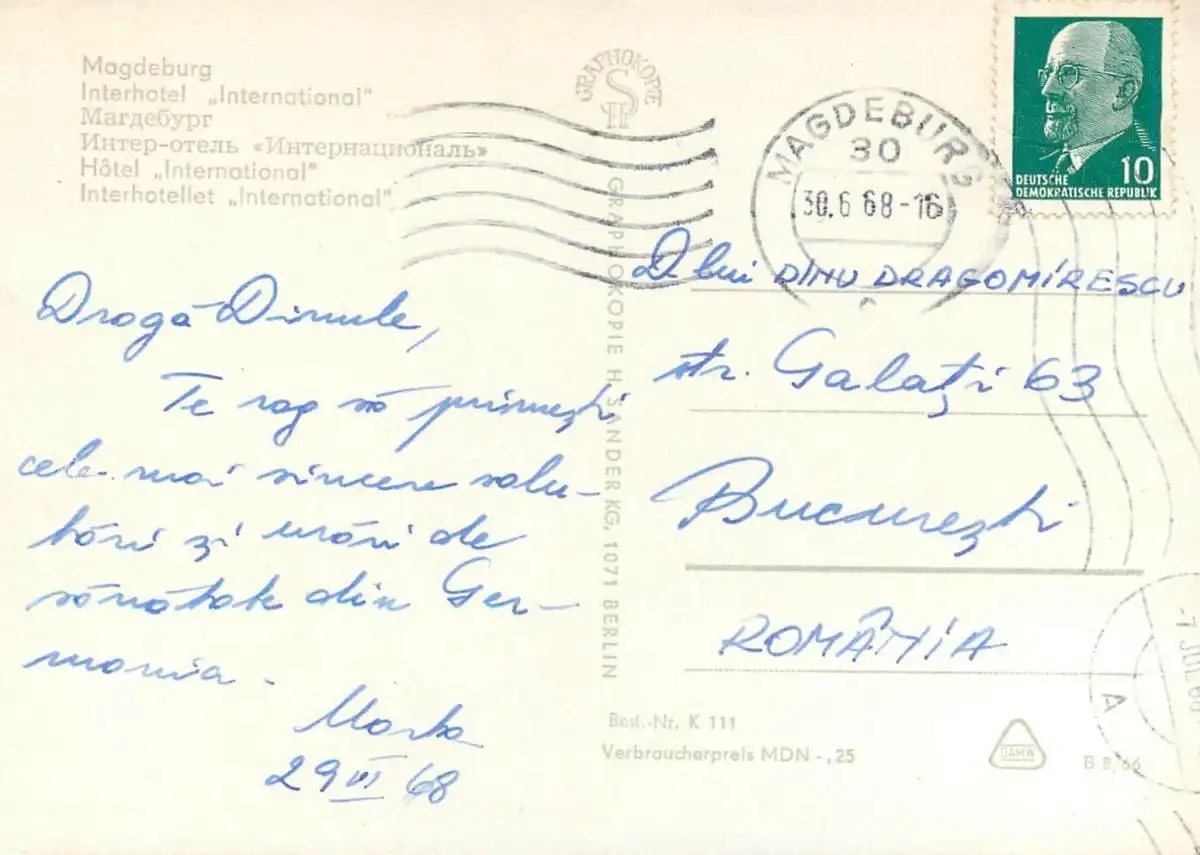 Magdeburg
Interhotel „International“
Магдебург
Интер-отель «Интернациональ»
Hôtel „International“
Interhotellet „International“
GRAPHOKOPIE
H S
GRAPHOKOPIE H. SANDER KG, 1071 BERLIN
MAGDEBURG
30
30.6 68-16
10
DEUTSCHE
DEMOKRATISCHE REPUBLIK
Dragă Dinule,
Te rog să primești
cele mai sincere salu-
tări și urări de
sănătate din Ger-
mania.
29 VI 68
D-lui DINU DRAGOMIRESCU
str. Galați 63
București
ROMÂNIA
Best.-Nr. K 111
Verbraucherpreis MDN -,25
DAMW
B 8/66
-7 JUL 68
A